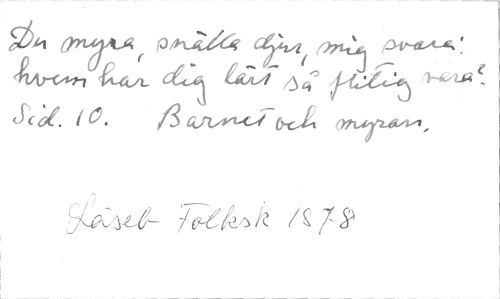 Du myra, snälla djur, mig svara:
hvem har dig lärt så flitig vara?
Sid. 10. Barnet och myran.
Läseb Folksk 1878